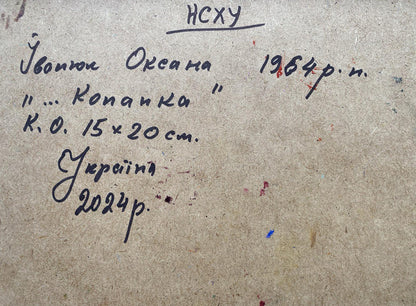 НСХУ
Івонюк Оксана 1964 р.н.
„... Копанка"
К.О. 15×20 см.
Україна
2024р.